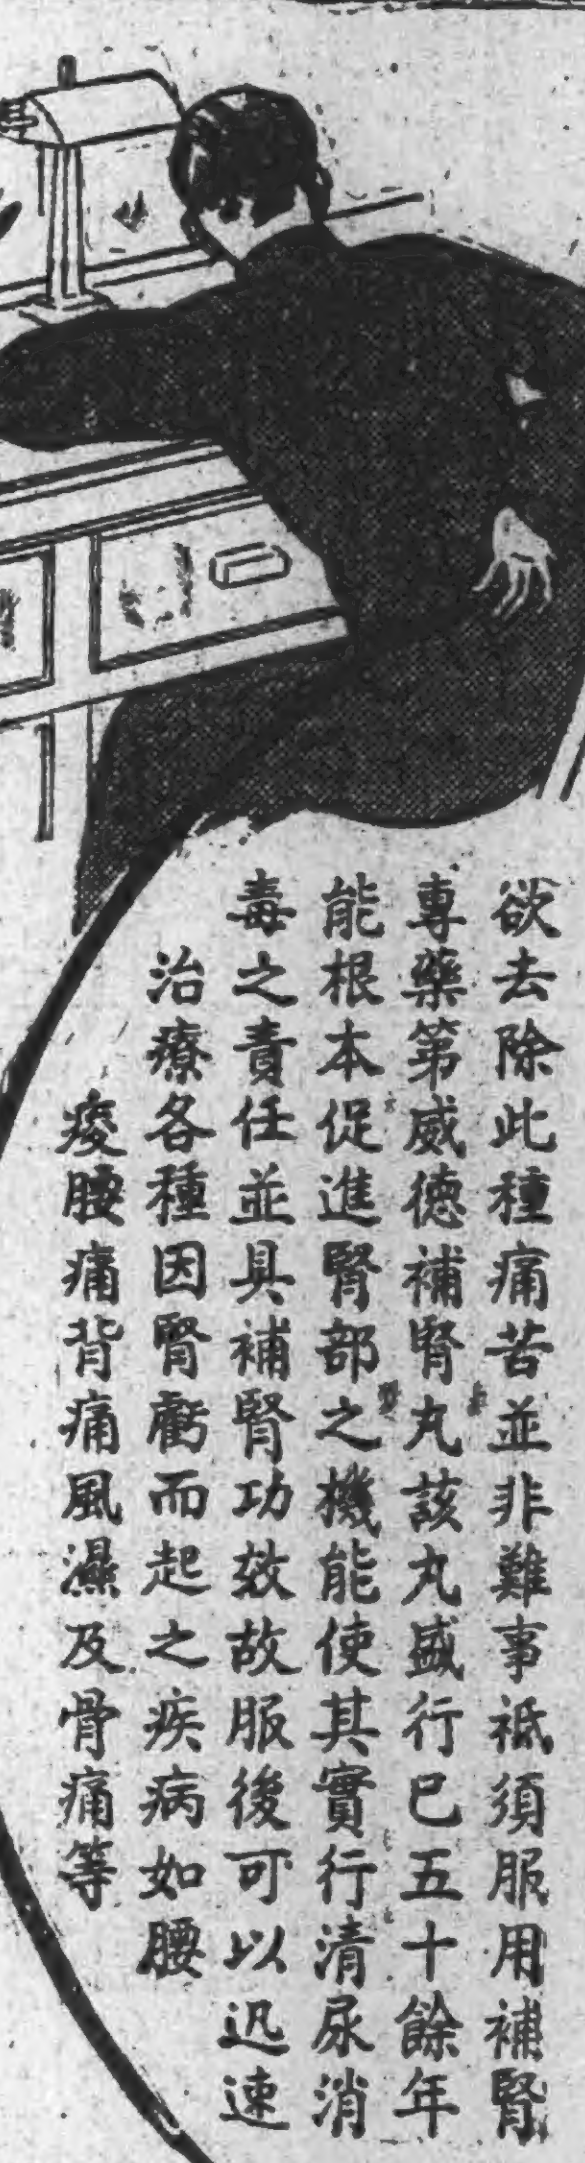 欲去除此種痛苦並非難事祗須服用補腎
專藥第威德補腎丸該丸盛行已五十餘年
能根本促進腎部之機能使其實行清尿消
毒之責任並具補腎功效故服後可以迅速
治療各種因腎虧而起之疾病如腰
痠腰痛背痛風濕及骨痛等